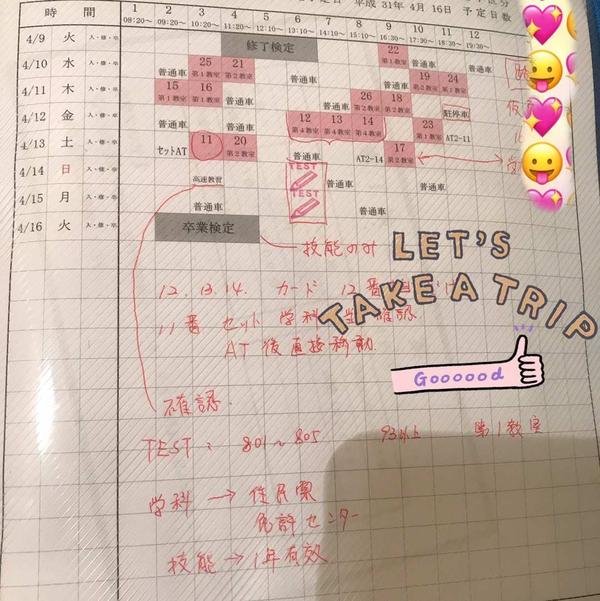 平成 31年 4月 16日 予定日数
時間 1 2 3 4 5 6 7 8 9 10 11 12
08:20~ 09:20~ 10:20~ 11:20~ 12:10~ 13:10~ 14:10~ 15:20~ 16:30~ 17:30~ 18:30~ 19:30~
4/9 火 入・修・卒 修了検定 普通車 22 第1教室 普通車
4/10 水 入・修・卒 普通車 25 第1教室 21 第2教室 普通車 19 第2教室 24 第1教室
4/11 木 入・修・卒 15 第1教室 16 第1教室 普通車 26 第2教室 18 第2教室 普通車 駐停車
4/12 金 入・修・卒 普通車 普通車 12 第4教室 13 第4教室 14 第4教室 23 第1教室 AT2-11
4/13 土 入・修・卒 セットAT 11 20 第2教室 普通車 AT2-14 17 第2教室
4/14 日 入・修・卒 高速教習 TEST 普通車 普通車
4/15 月 入・修・卒 普通車 TEST 普通車
4/16 火 入・修・卒 卒業検定
技能のみ
LET'S
TAKE A TRIP
12.13.14. カード 12番
11番 セット 学科
AT後直接移動
Goooood
確認
TEST: 801~805 93以上 第1教室
学科 → 住民票
免許センター
技能 → 1年有効